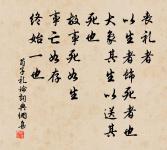 喪禮者
以生者飾死者也
大象其生以送其
死也
故事死如生
事亡如存
終始一也
荀子禮論詞典網集